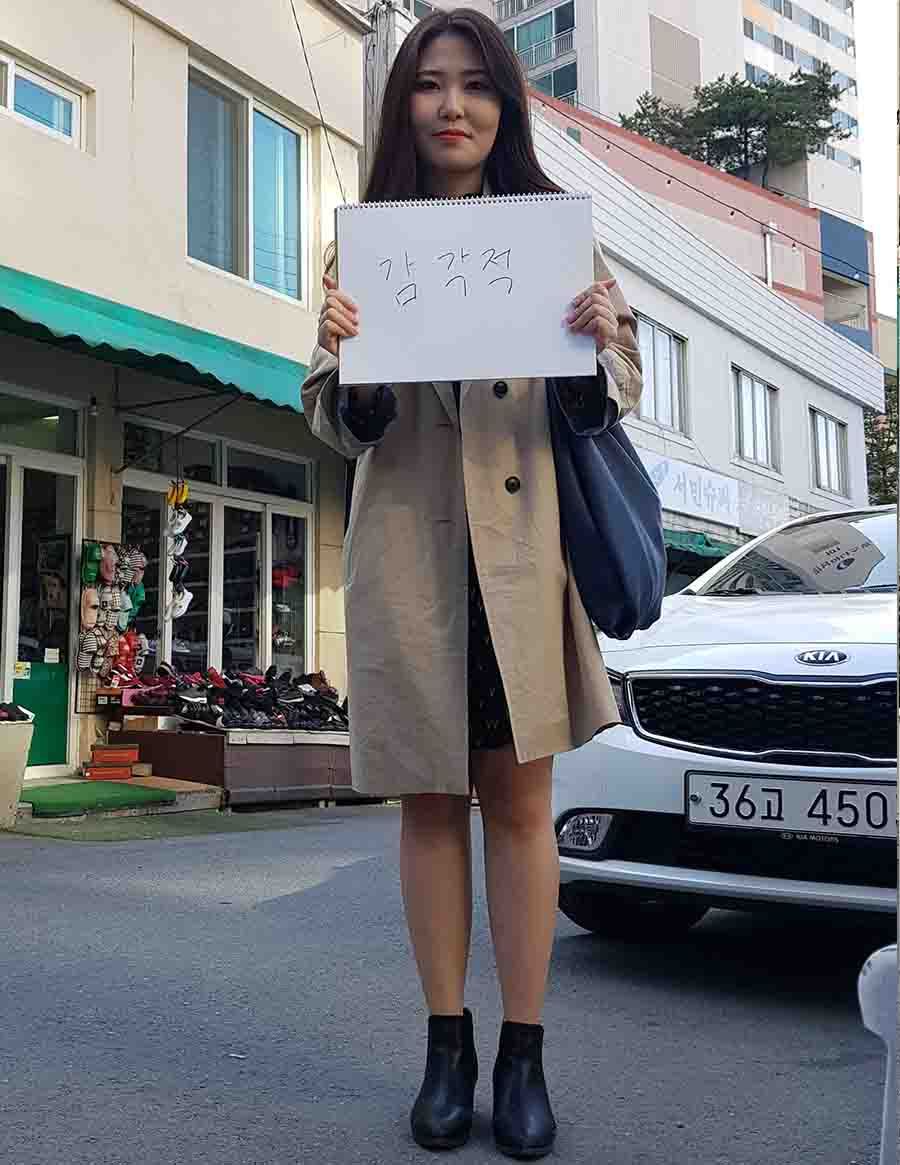 감각적
서민슈퍼
KIA
36고 450
KIA MOTORS